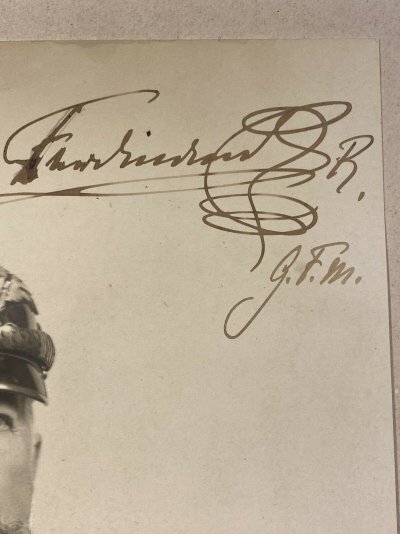 Ferdinand R.
G.F.M.